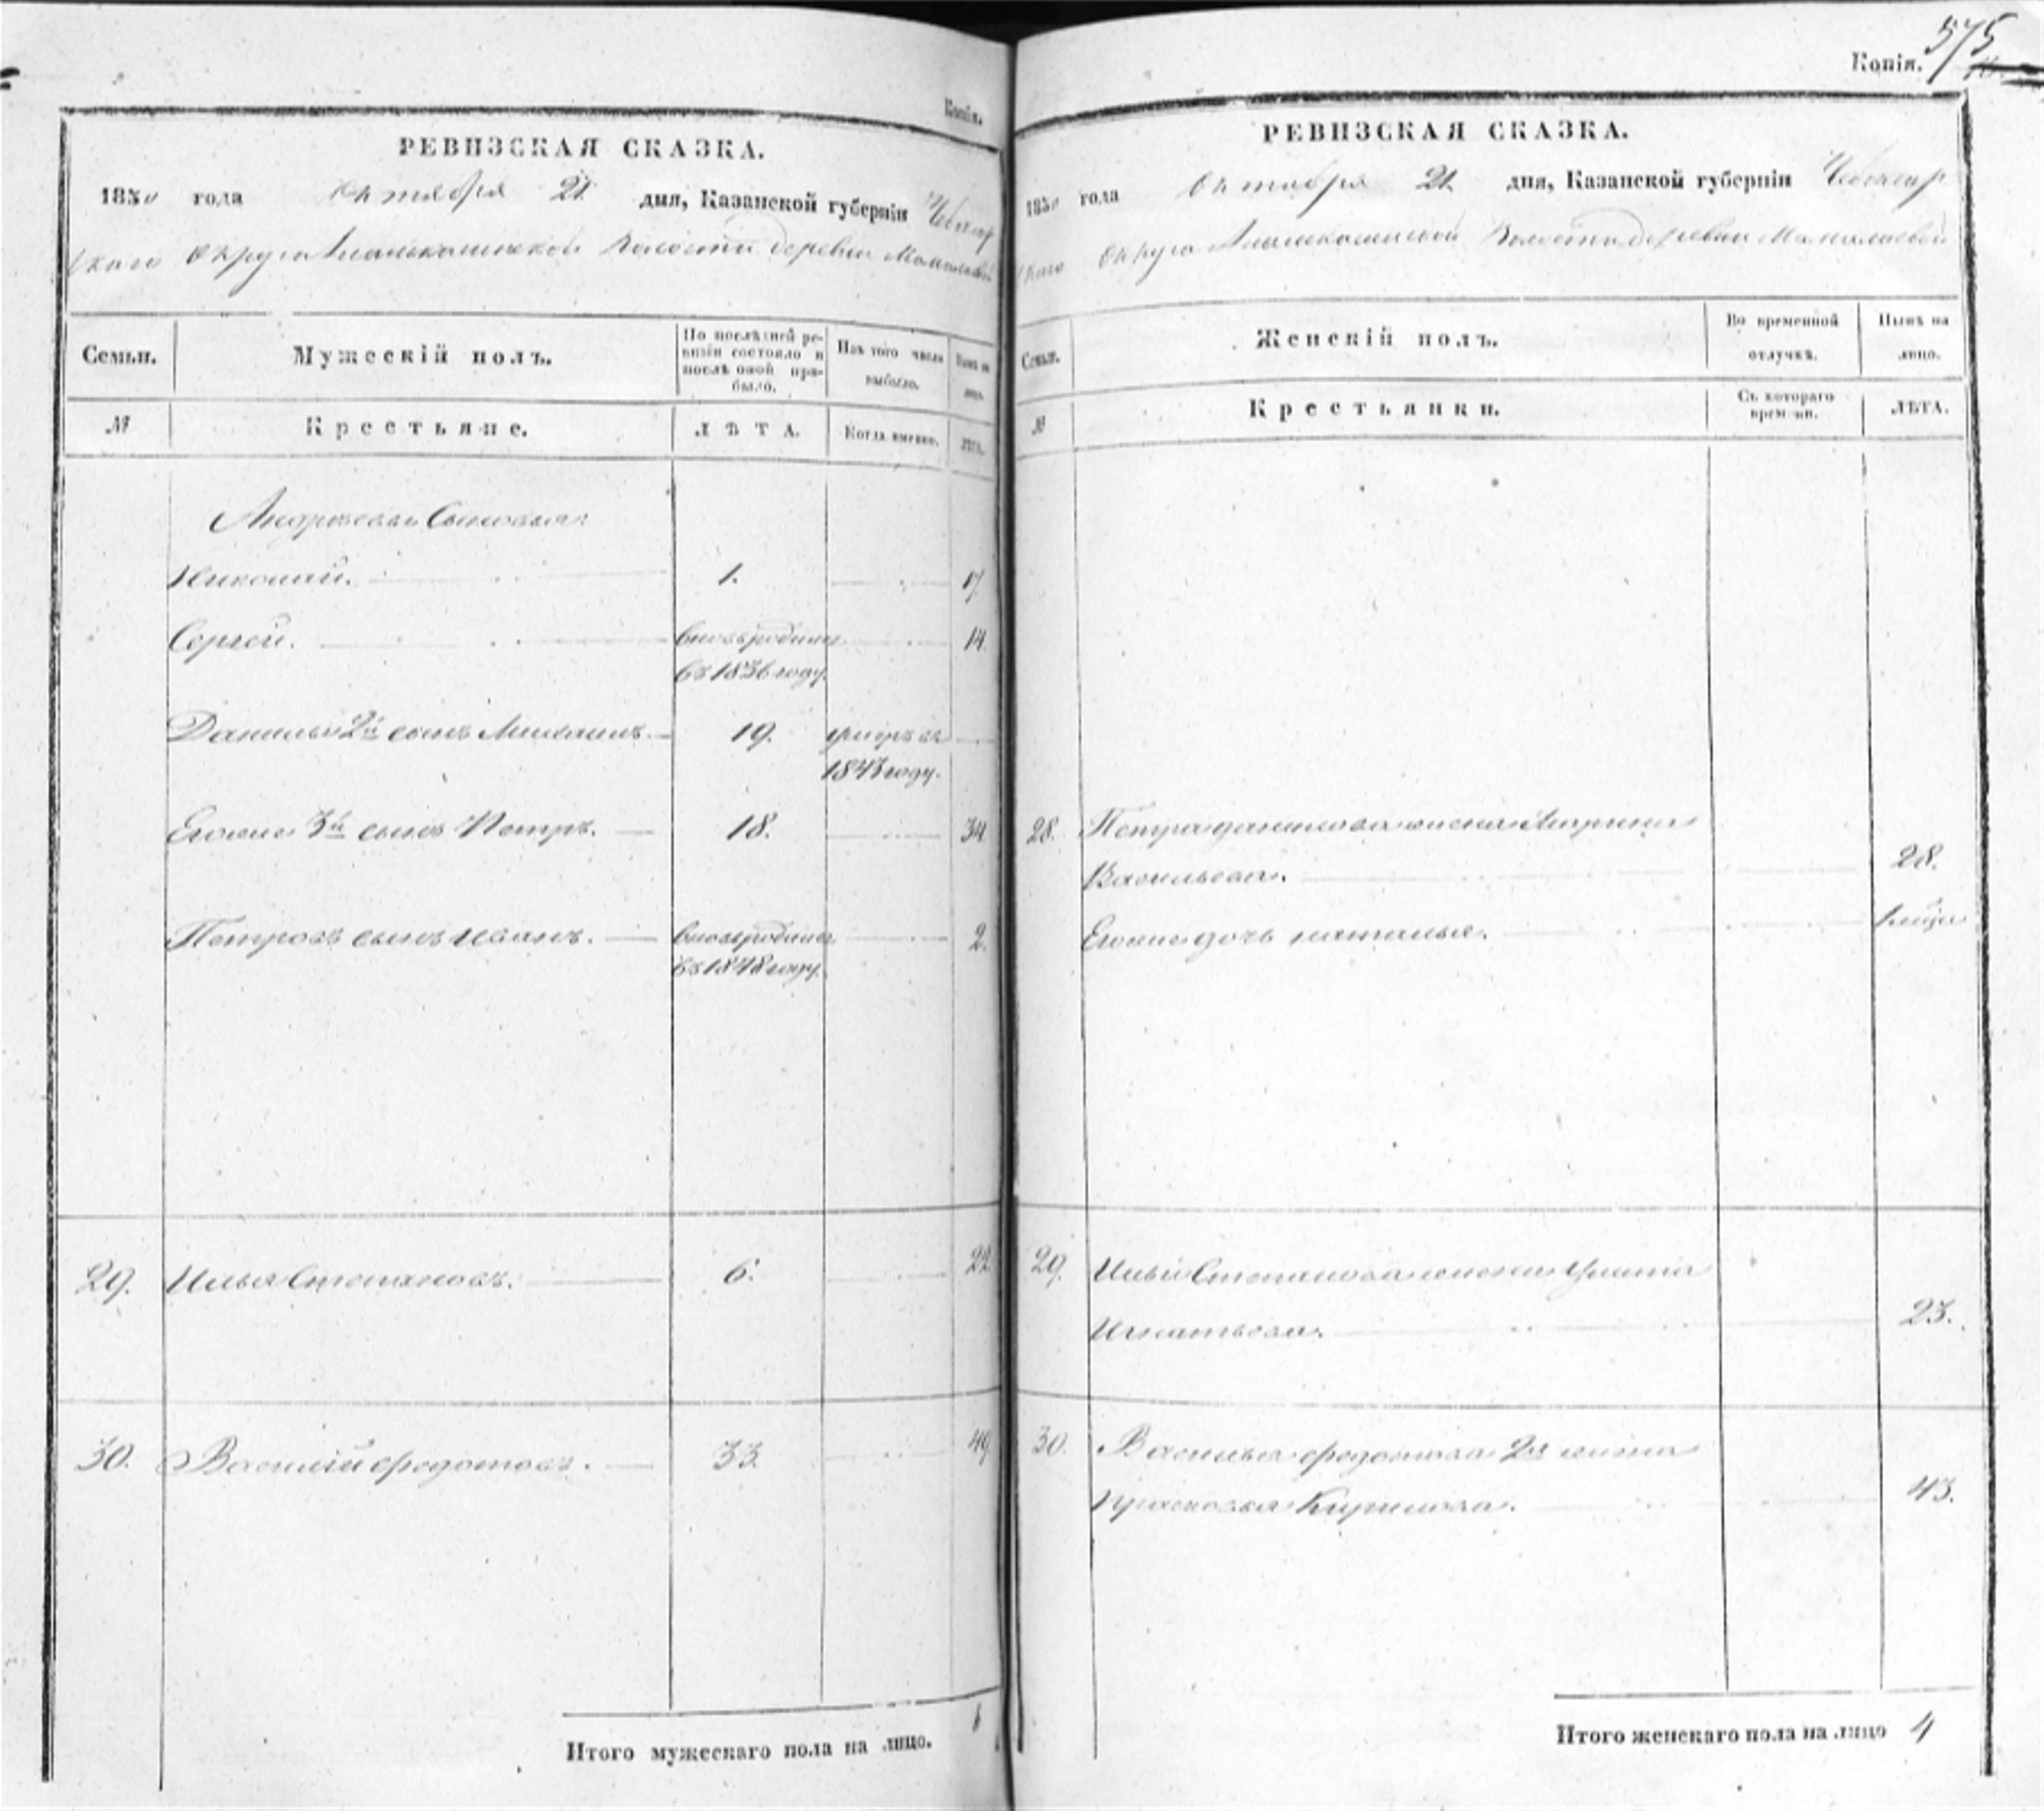 Копія.
РЕВИЗСКАЯ СКАЗКА.
1850 года Октября 21 дня, Казанской губерніи Чебоксар
скаго Округа Волости деревни
Семьи.
Мужескій полъ.
По послѣдней ре-
визіи состояло и
послѣ оной при-
было.
Изъ того числа
выбыло.
Нынѣ на
лицо.
№
Крестьяне.
ЛѢТА.
Когда именно.
ЛѢТА.
Андреевы Сыновья:
Николай. 1. 17
Сергей. вновьрожден 14.
въ 1836 году.
Данилы 2й сынъ Михаилъ. 19. умеръ въ
1843 году.
Егоже 3й сынъ Петръ. 18. 34
Петровъ сынъ Иванъ. вновьрожден 2.
въ 1848 году.
29. Илья Степановъ. 6. 22
30. Василий Федотовъ. 33. 49
Итого мужескаго пола на лицо. 6
575
Копія.
РЕВИЗСКАЯ СКАЗКА.
1850 года Октября 21. дня, Казанской губерніи Чебоксар
скаго Округа Волости деревни
Семьи.
Женскій полъ.
Во временной
отлучкѣ.
Нынѣ на
лицо.
№
Крестьянки.
Съ котораго
времяни.
ЛѢТА.
28. Петра данилова жена
Васильева. 28.
Егоже дочь наталья. 1 мѣца
29. Ильи Степанова жена Улита
Игнатьева. 23.
30. Василья федотова 2я жена
прасковья Кирилова. 43.
Итого женскаго пола на лицо 4